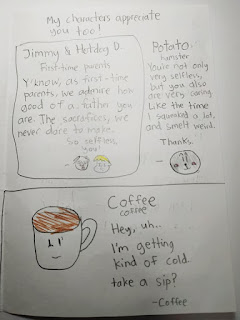 My characters appreciate
you too!
Jimmy & Hotdog D.
First-time parents
Y'know, as first-time
parents, we admire how
good of a father you
are. The sacrifices, we
never dare to make.
So selfless,
you!
Potato:
hamster
You're not only
very selfless,
but you also
are very caring.
Like the time
I squeaked a lot,
and smelt weird.
Thanks.
Coffee
coffee
Hey, uh..
I'm getting
kind of cold.
take a sip?
-Coffee